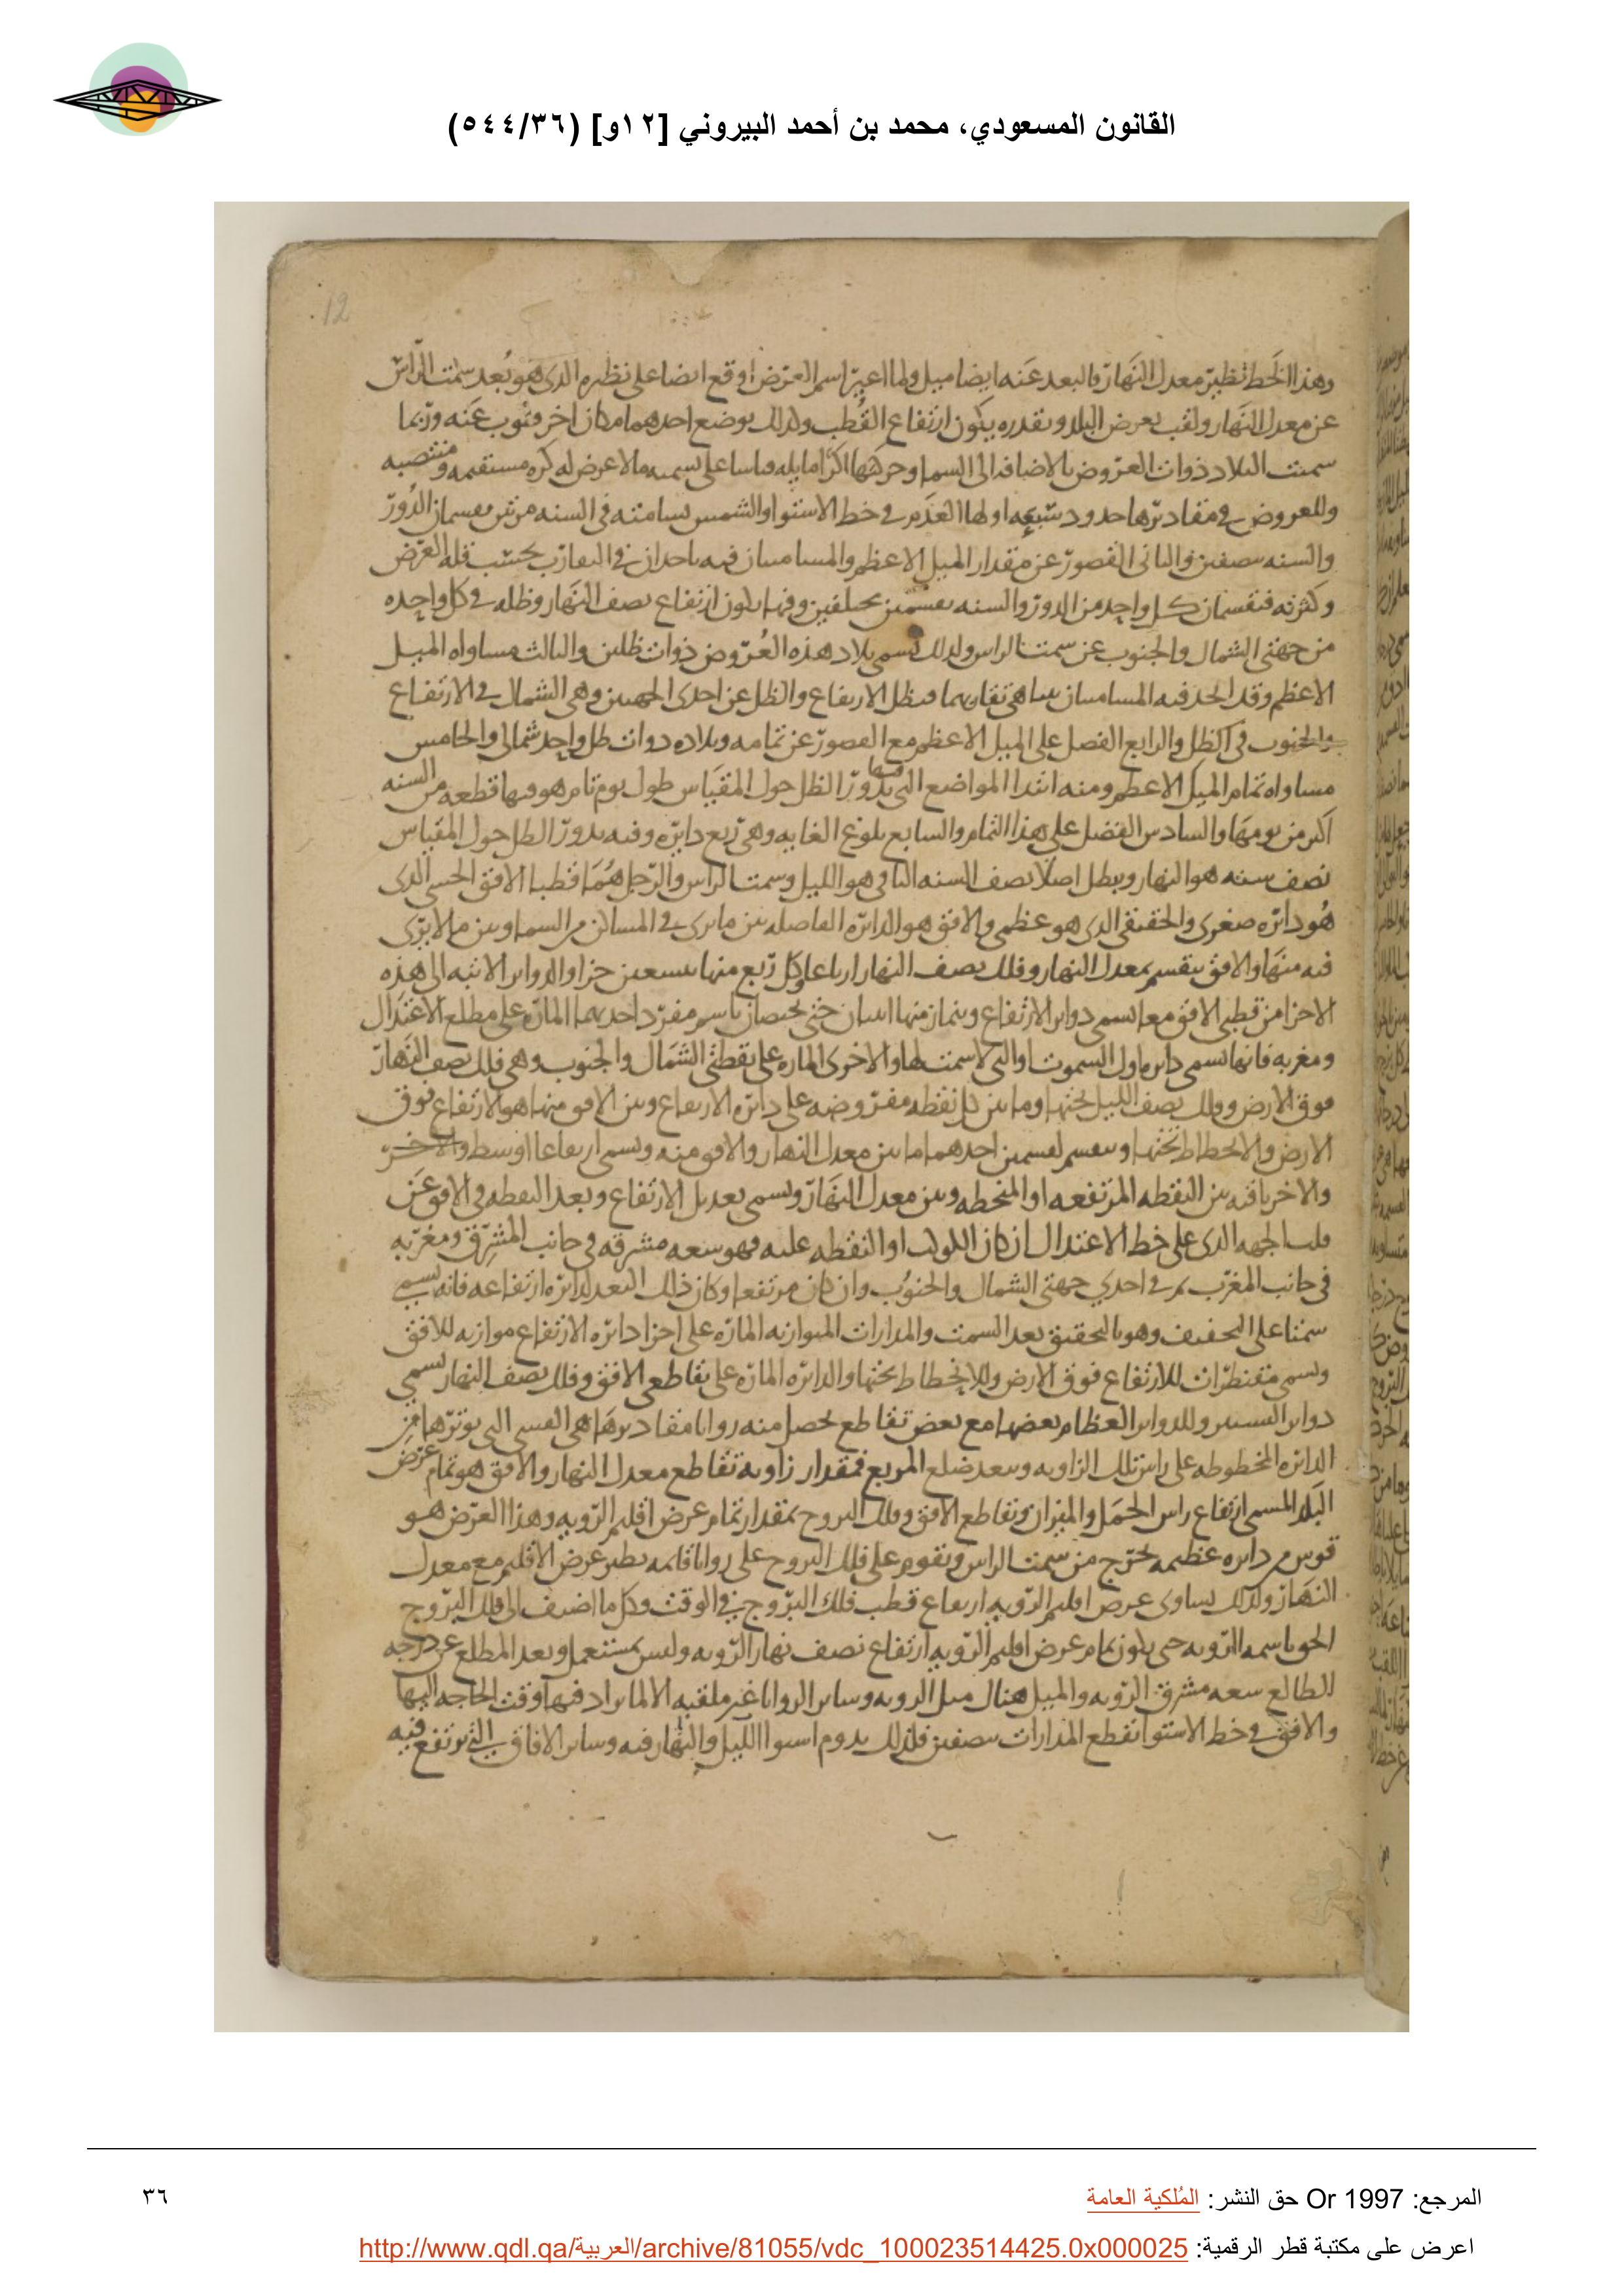 القانون المسعودي، محمد بن أحمد البيروني [١٢و] (٥٤٤/٣٦)
12
وهذا الخط نظير معدل النهار فالبعد عنه ايضا ميل ولما اعير اسم العرض اوقع ايضا على نظيره الذى هو بعد سمت الراس
عن معدل النهار ولقب بعرض البلد وبقدره يكون ارتفاع القطب ولذلك يوضع احدهما مكان اخر وينوب عنه وربما
سميت البلاد ذوات العروض بالاضافه الى السما وحركتها اكرا مايله وقياسا على تسميه مالا عرض له كره مستقيمه ومنتصبه
وللعروض في مقاديرها حدود سبعه اولها العدم في خط الاستوا والشمس تسامته في السنه مرتين يقسمان الدور
والسنه بنصفين والثانى القصور عن مقدار الميل الاعظم والمسامتتان فيه تاخذان في التقارب بحسب قله العرض
وكثرته فتقسمان كل واحد من الدور والسنه بقسمين مختلفين وفيها يكون ارتفاع نصف النهار وظله في كل واحده
من جهتى الشمال والجنوب عن سمت الراس ولذلك تسمى بلاد هذه العروض ذوات ظلين والثالث مساواه الميل
الاعظم وقد اتحد فيه المسامتتان بتناهى تقاربهما فبطل الارتفاع والظل عن احدى الجهتين وهى الشمال في الارتفاع
والجنوب في الظل والرابع الفضل على الميل الاعظم مع القصور عن تمامه وبلاده ذوات ظل واحد شمالى والخامس
مساواه تمام الميل الاعظم ومنه ابتدا المواضع التى فيها يدور الظل حول المقياس طول يوم تام هو فيها قطعه من السنه
اكبر من يومها والسادس الفضل على هذا التمام والسابع بلوغ الغايه وهى ربع دايره وفيه يدور الظل حول المقياس
نصف سنه هو النهار ويبطل اصلا نصف السنه الباقى هو الليل وسمتا الراس والرجل هما قطبا الافق الحسى الذى
هو دايره صغرى والحقيقى الذى هو عظمى والافق هو الدايره الفاصله بين مايرى في المساكن من السما وبين ما لا يرى
فيه منها والافق ينقسم بمعدل النهار وفلك نصف النهار ارباعا وكل ربع منها بتسعين جزا والدواير الاتيه الى هذه
الاجزا من قطبى الافق معا تسمى دواير الارتفاع ويمتاز منها اثنتان حتى يختصان باسم مفرد احديهما الماره على مطلع الاعتدال
ومغربه فانها تسمى دايره اول السموت او التى لا سمت لها والاخرى الماره على نقطتى الشمال والجنوب وهى فلك نصف النهار
فوق الارض وفلك نصف الليل تحتها وما بين كل نقطه مفروضه على دايره الارتفاع وبين الافق منها هو الارتفاع فوق
الارض والانحطاط تحتها وينقسم لقسمين احدهما ما بين معدل النهار والافق منه ويسمى ارتفاعا اوسط والاخر
والاخر باقيه بين النقطه المرتفعه او المنحطه وبين معدل النهار ويسمى تعديل الارتفاع وبعد النقطه في الافق عن
قلب الجهه الذى على خط الاعتدال ان كان الكوكب او النقطه عليه فهو سعه مشرقه في جانب المشرق ومغربه
في جانب المغرب ثم في احدى جهتى الشمال والجنوب وان كان مرتفعا وكان ذلك البعد لدايره ارتفاعه فانه يسمى
سمتا على التخفيف وهو بالتحقيق بعد السمت والمدارات المتوازيه الماره على اجزا دايره الارتفاع موازيه للافق
وتسمى مقنطرات للارتفاع فوق الارض وللانحطاط تحتها والدايره الماره على تقاطعى الافق وفلك نصف النهار تسمى
وللدواير العظام بعضها مع بعض تقاطع تحصل منه زوايا مقاديرها هى القسى التى توترها من
الدايره المخطوطه على راس تلك الزاويه وببعد ضلع المربع فمقدار زاويه تقاطع معدل النهار والافق هو تمام عرض
البلد المسمى ارتفاع راس الحمل والميزان وتقاطع الافق وفلك البروج بمقدار تمام عرض اقليم الرويه وهذا العرض هو
قوس من دايره عظيمه تخرج من سمت الراس وتقوم على فلك البروج على زوايا قايمه نظير عرض الاقليم مع معدل
النهار ولذلك يساوى عرض اقليم الرويه ارتفاع قطب فلك البروج في الوقت وكل ما اضيف الى فلك البروج
الحق باسمه الرويه حتى يكون تمام عرض اقليم الرويه ارتفاع نصف نهار الرويه وليس بمستعمل وبعد المطلع عن درجه
الطالع سعه مشرق الرويه والميل هناك ميل الرويه وساير الزوايا غير ملقبه الا لما يراد فيها وقت الحاجه اليها
والافق في خط الاستوا تقطع المدارات بنصفين فلذلك يدوم استوا الليل والنهار فيه وساير الافاق التى ترتفع فيه
المرجع: Or 1997 حق النشر: المُلكية العامة
٣٦
اعرض على مكتبة قطر الرقمية: http://www.qdl.qa/العربية/archive/81055/vdc_100023514425.0x000025